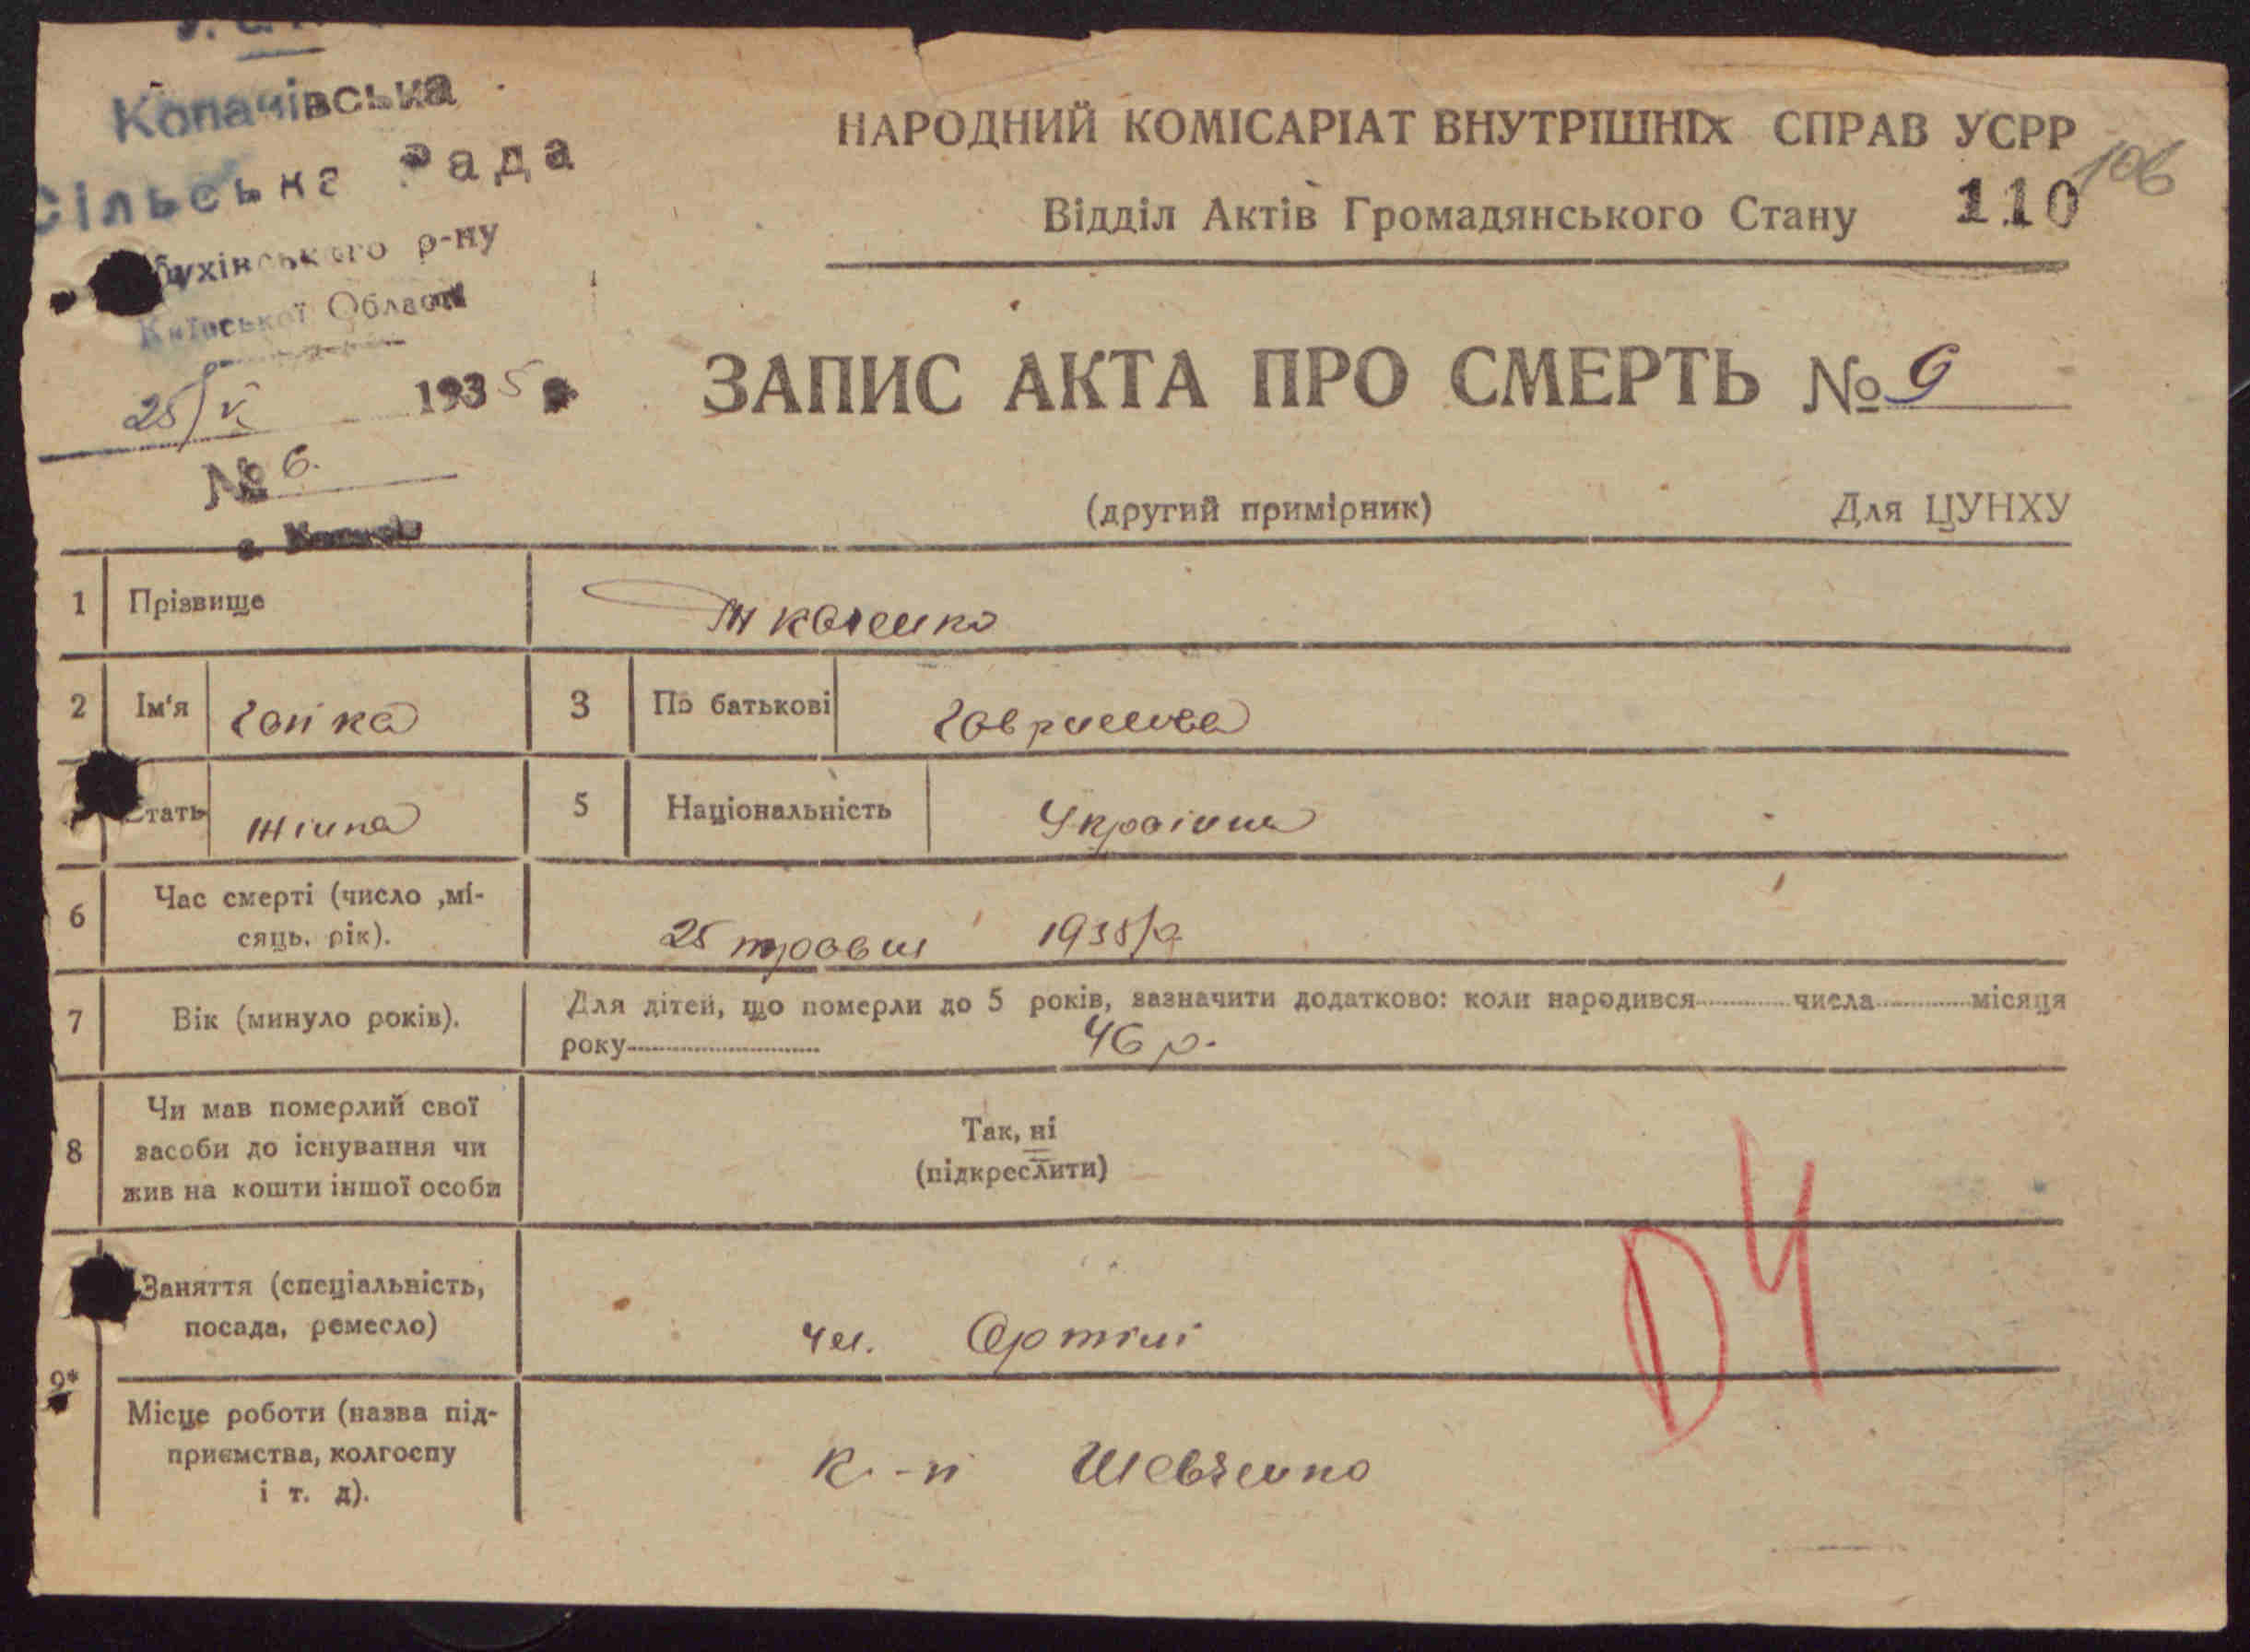 Копачівська
Сільська Рада
бухівського р-ну
Київської Області
25/V 1935 р.
№ 6.
НАРОДНИЙ КОМІСАРІАТ ВНУТРІШНІХ СПРАВ УСРР
106
Відділ Актів Громадянського Стану 110
ЗАПИС АКТА ПРО СМЕРТЬ № 9
(другий примірник) Для ЦУНХУ
1 Прізвище
2 Ім'я 3 По батькові
Стать жінка 5 Національність
6 Час смерті (число ,мі-
сяць, рік). 25 травня 1935/р
7 Вік (минуло років). Для дітей, що померли до 5 років, зазначити додатково: коли народився числа місяця
року 46 р.
8 Чи мав померлий свої
засоби до існування чи
жив на кошти іншої особи
Так, ні
(підкреслити)
Заняття (спеціальність,
посада, ремесло) чл. Артілі
9*
Місце роботи (назва під-
приємства, колгоспу
і т. д). к-п Шевченко
D4